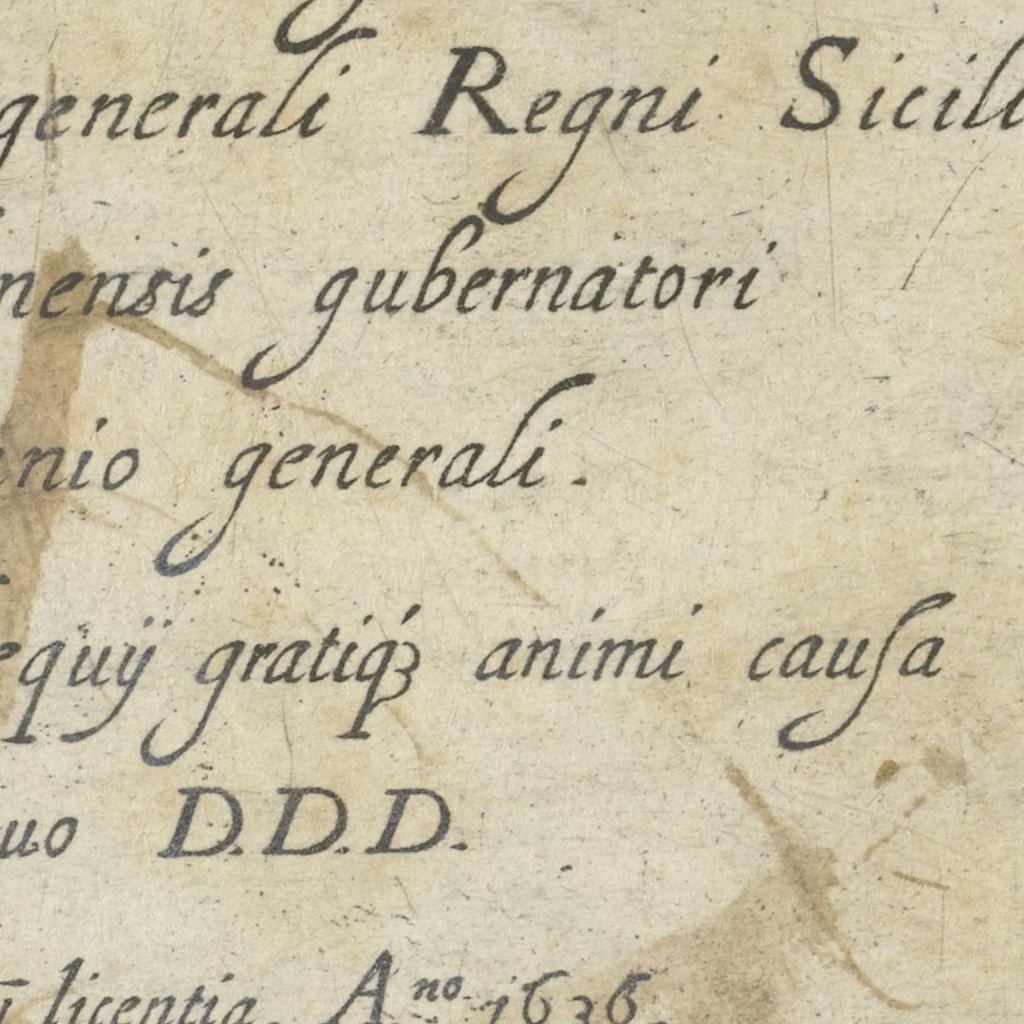 generali Regni Sicili
nensis gubernatori
nio generali.
equÿ gratiq́ꝫ animi cauſa
uo D.D.D.
licentia. Aⁿᵒ. 1636.